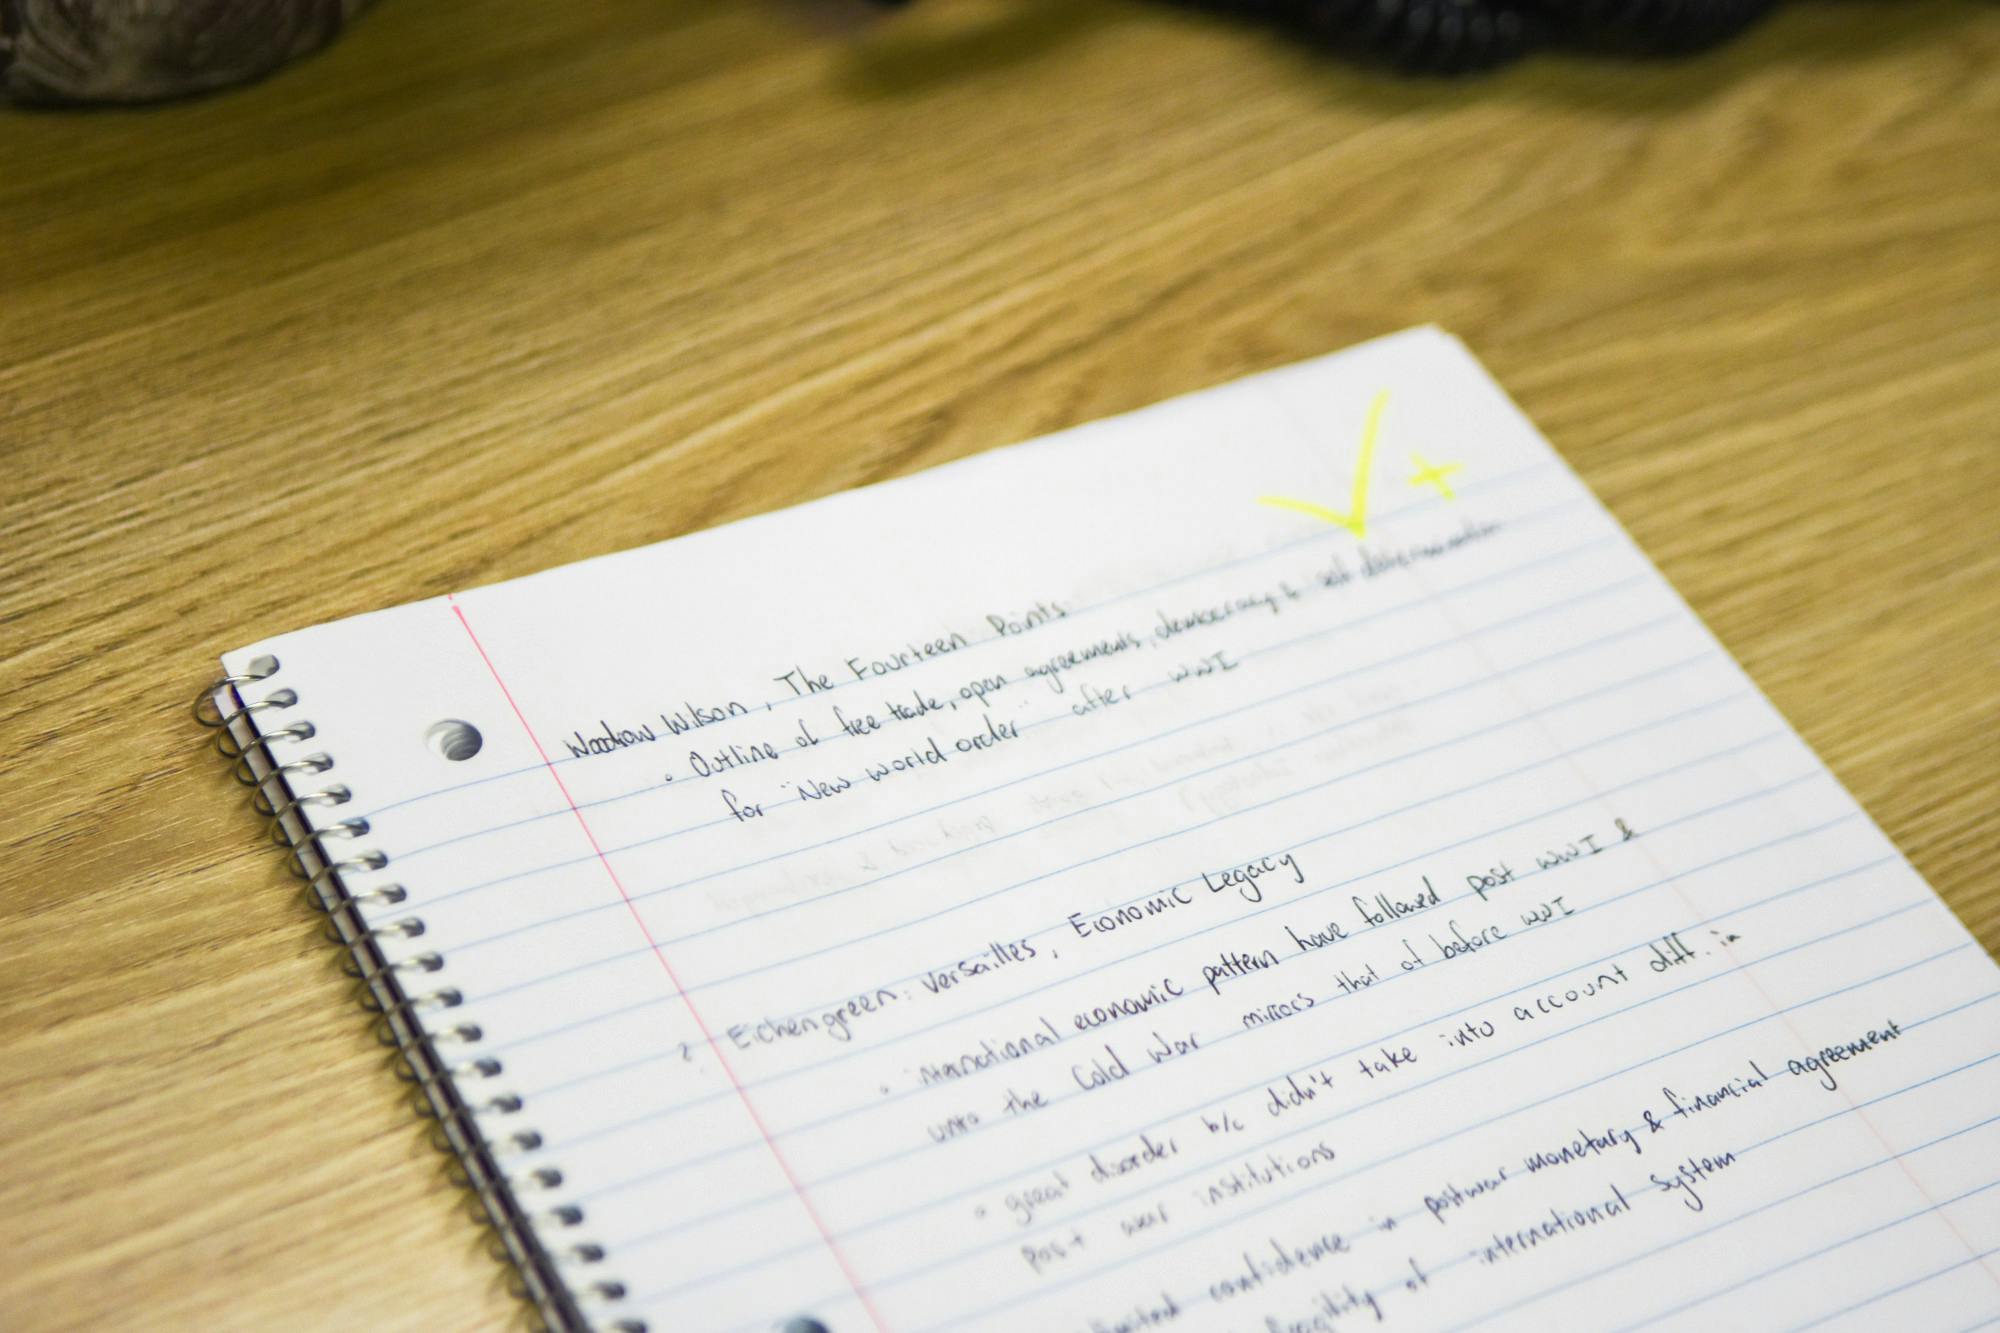 ✓+
Woodrow Wilson, The Fourteen Points
• Outline of free trade, open agreements, democracy & self determination
for "New world order" after WWI
? Eichengreen: Versailles, Economic Legacy
• international economic pattern have followed post WWI &
unto the Cold War mirrors that of before WWI
• great disorder b/c didn't take into account diff. in
post war institutions
confidence in postwar monetary & financial agreement
fragility of international system